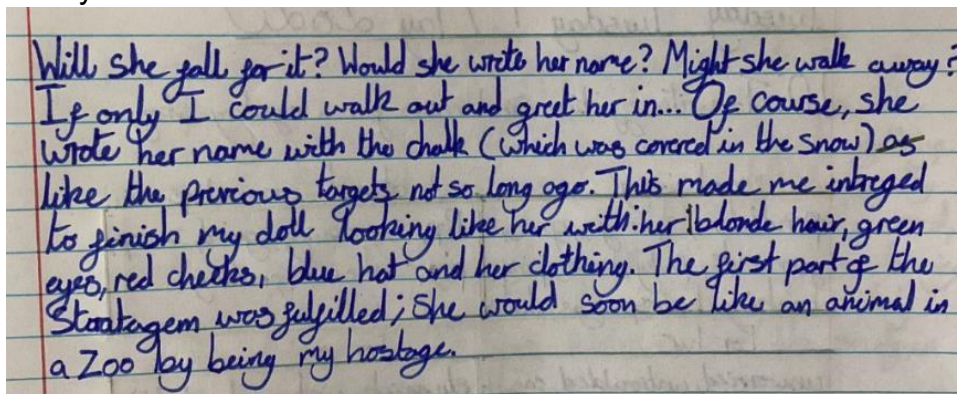 Will she fall for it? Would she write her name? Might she walk away?
If only I could walk out and greet her in... Of course, she
wrote her name with the chalk (which was covered in the snow) as
like the previous targets not so long ago. This made me intreged
to finish my doll looking like her with her blonde hair, green
eyes, red cheeks, blue hat and her clothing. The first part of the
Stratagem was fulfilled; She would soon be like an animal in
a Zoo by being my hostage.